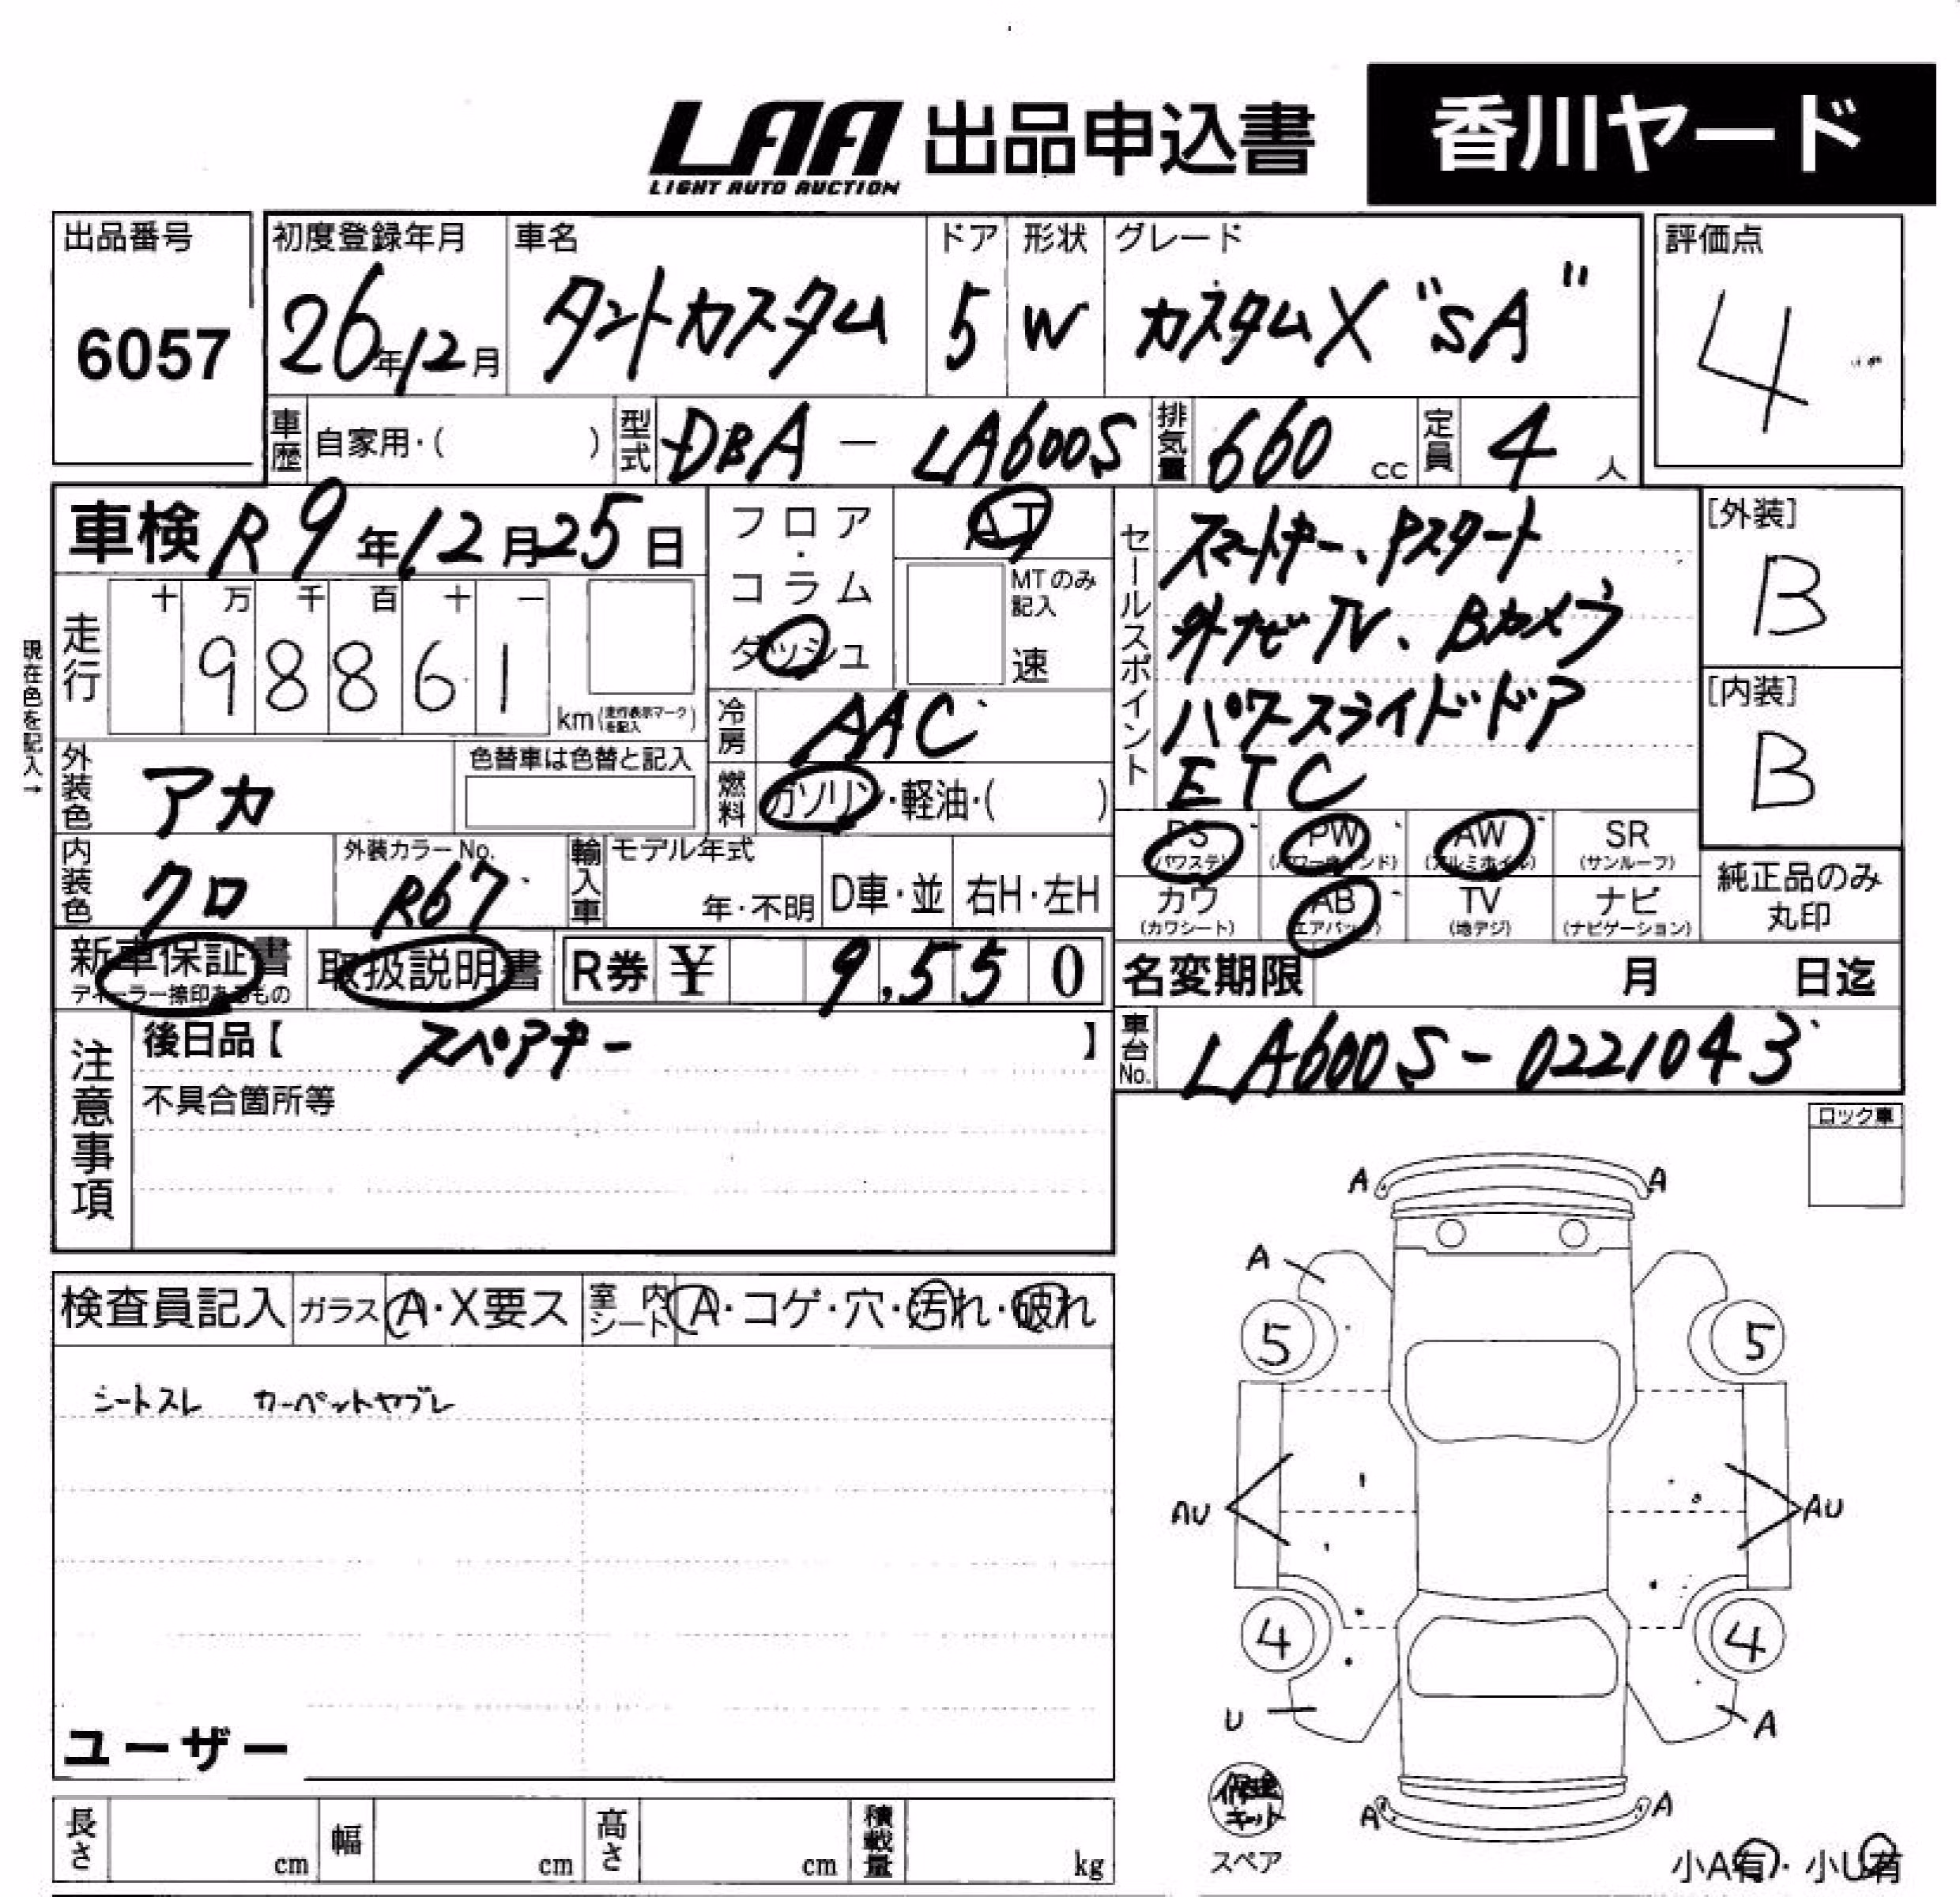 LAA 出品申込書 香川ヤード
LIGHT AUTO AUCTION
出品番号 初度登録年月 車名 ドア 形状 グレード 評価点
6057 26年12月 タントカスタム 5 W カスタムX "SA" 4
車歴 自家用・( ) 型式 DBA - LA600S 排気量 660 cc 定員 4 人
車検 R9年12月25日 フロア・コラム・ダッシュ AT
MTのみ記入 速
セールスポイント スマートキー、Pスタート
外ナビTV、Bカメラ
パワースライドドア
ETC
[外装] B
[内装] B
現在色を記入→
走行 十 万 千 百 十 一
9 8 8 6 1 km (走行表示マークを記入)
冷房 AAC
外装色 アカ 色替車は色替と記入
燃料 ガソリン・軽油・( )
PS PW AW SR
(パワステ) (パワーウインド) (アルミホイル) (サンルーフ)
カワ AB TV ナビ
(カワシート) (エアバック) (地デジ) (ナビゲーション)
純正品のみ丸印
内装色 クロ 外装カラーNo. R67 輸入車 モデル年式 年・不明 D車・並 右H・左H
新車保証書 取扱説明書 R券 ¥ 9,550
ディーラー捺印あるもの
名変期限 月 日迄
注意事項 後日品【 スペアキー 】
車台No. LA600S-0221043
不具合箇所等
ロック車
A A
A
検査員記入 ガラス A・X要ス 室内シート A・コゲ・穴・汚れ・破れ
5 5
シートスレ カーペットヤブレ
AU AU
4 4
U A
ユーザー
修理キット
A A
スペア
長さ cm 幅 cm 高さ cm 積載量 kg
小A有・小U有